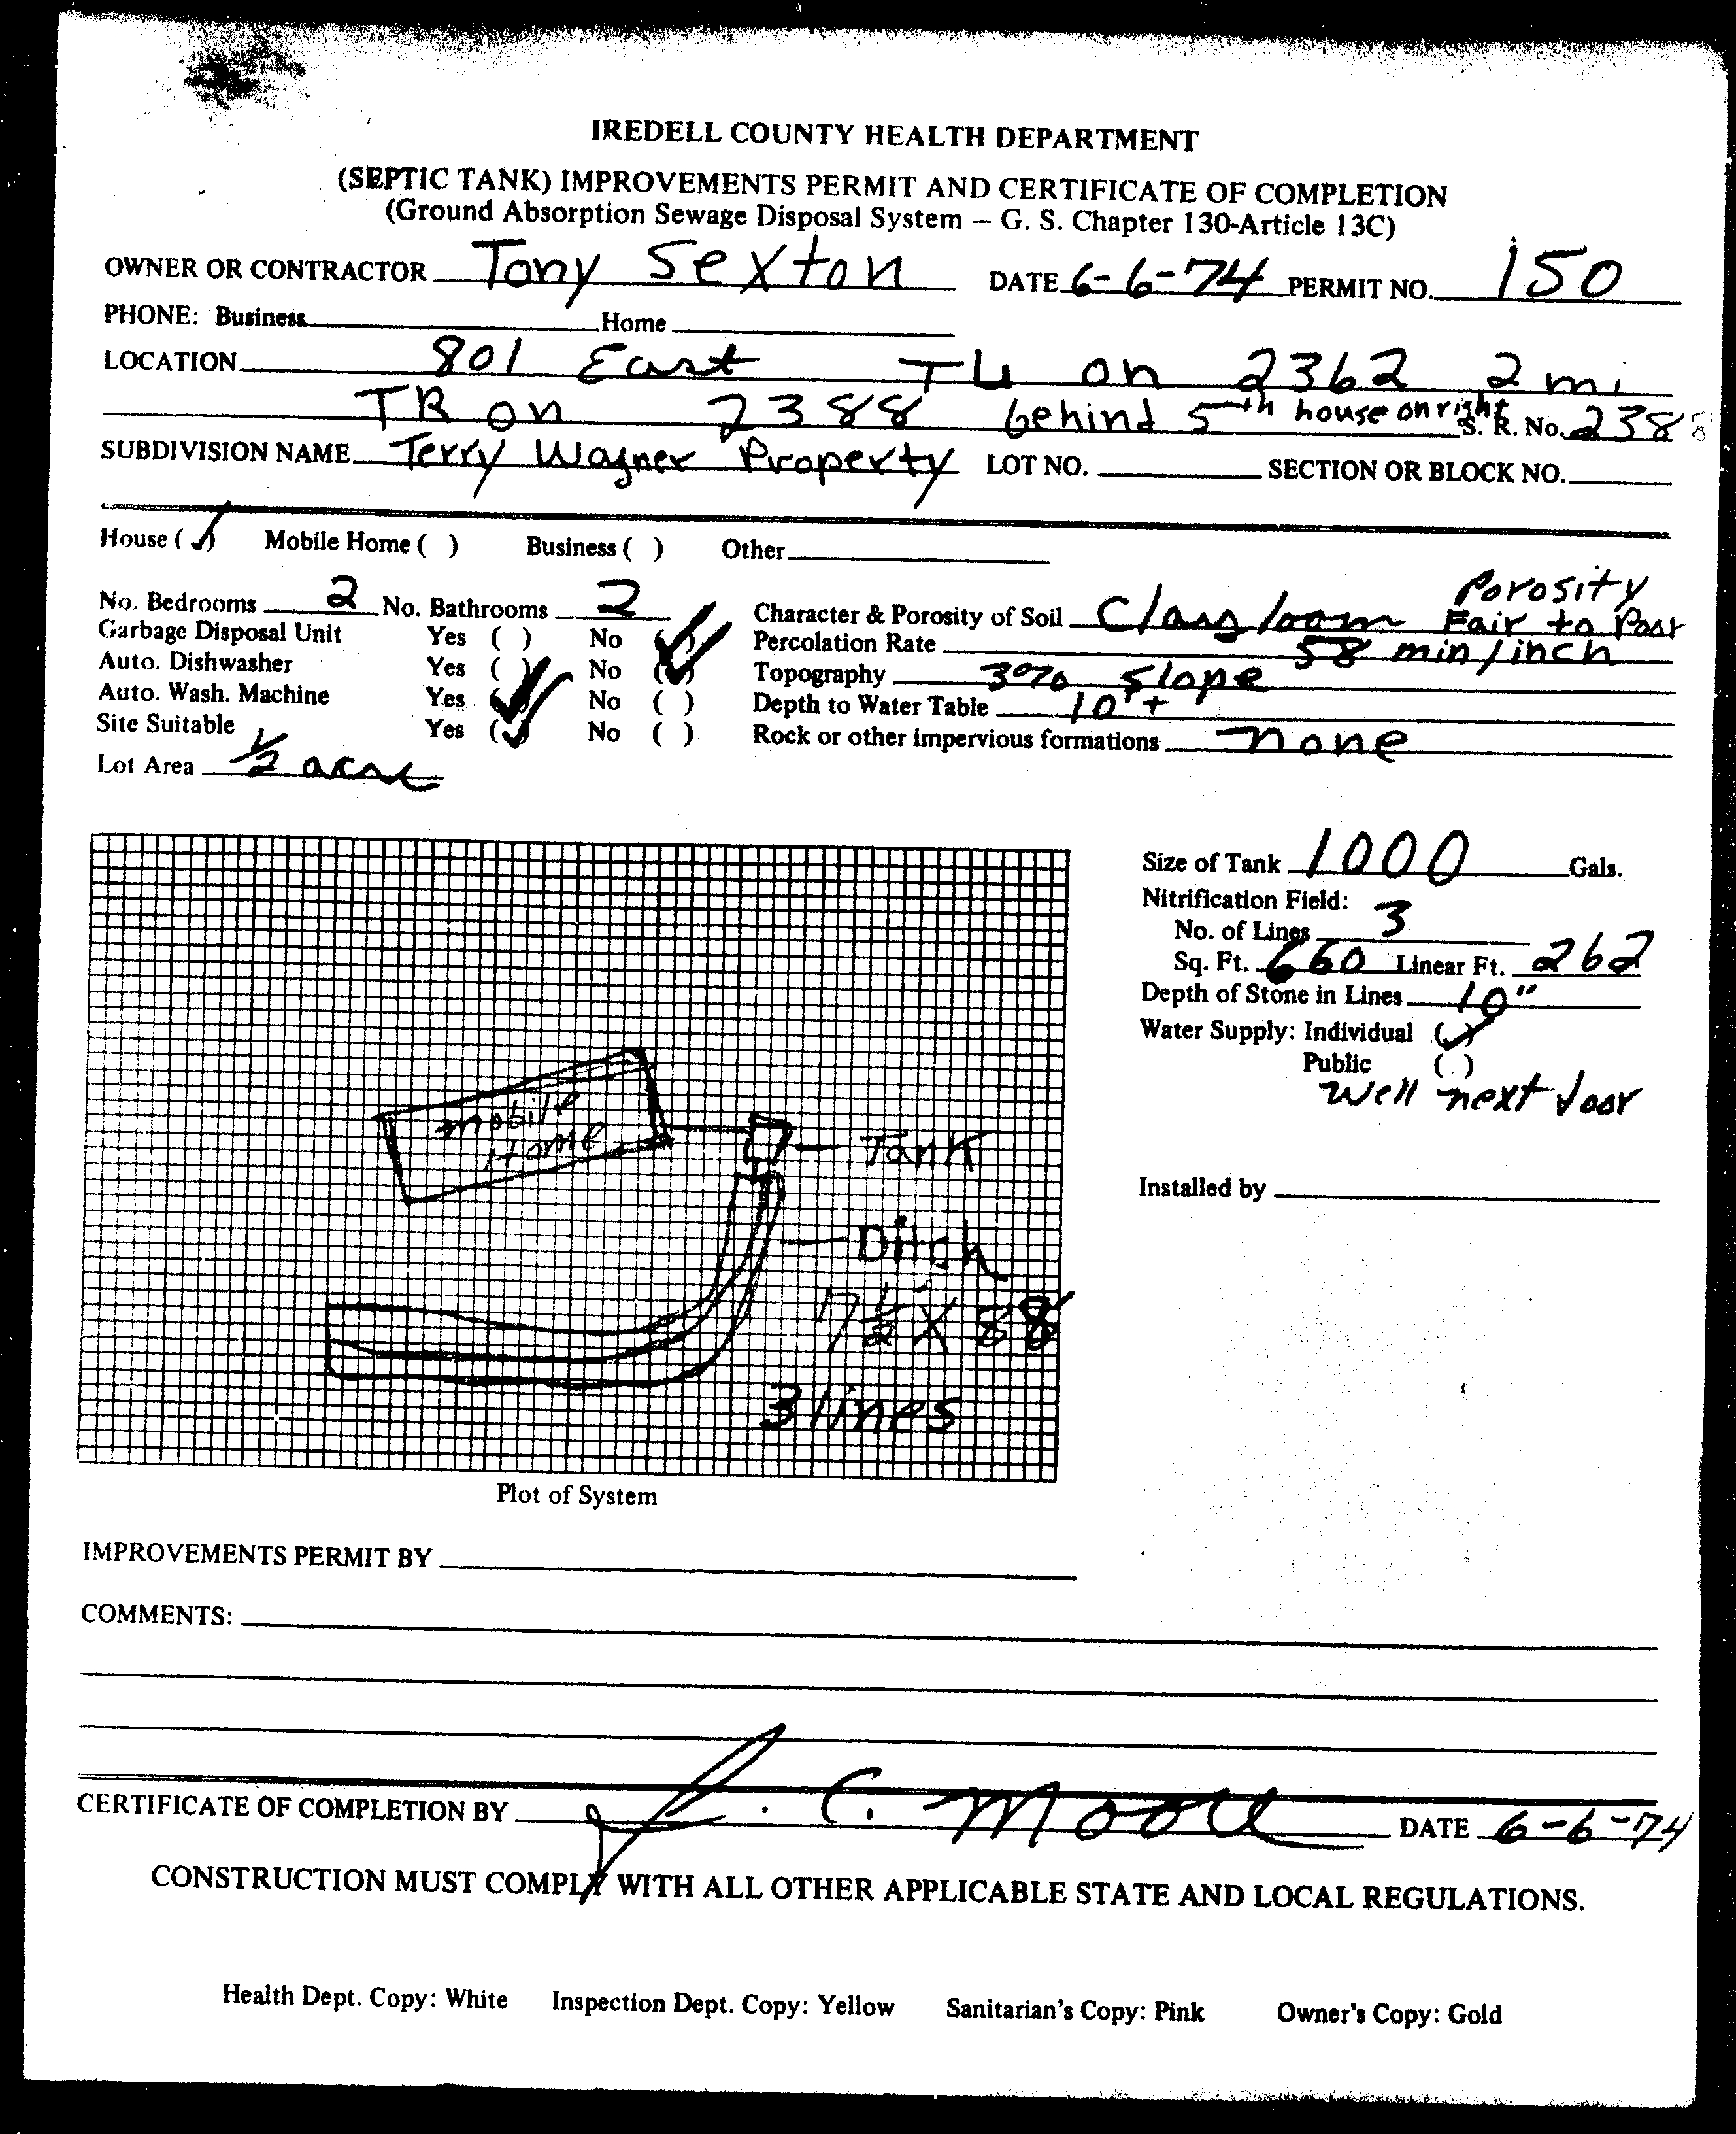 IREDELL COUNTY HEALTH DEPARTMENT
(SEPTIC TANK) IMPROVEMENTS PERMIT AND CERTIFICATE OF COMPLETION
(Ground Absorption Sewage Disposal System – G. S. Chapter 130-Article 13C)
OWNER OR CONTRACTOR Tony Sexton DATE 6-6-74 PERMIT NO. 150
PHONE: Business Home
LOCATION 801 East TL on 2362 2 mi
TR on 2388 behind 5th house on right S. R. No. 2388
SUBDIVISION NAME Terry Wagner Property LOT NO. SECTION OR BLOCK NO.
House (✓) Mobile Home ( ) Business ( ) Other
No. Bedrooms 2 No. Bathrooms 2 Character & Porosity of Soil Clay loam Porosity Fair to Poor
Garbage Disposal Unit Yes ( ) No (✓) Percolation Rate 58 min/inch
Auto. Dishwasher Yes ( ) No (✓) Topography 3% slope
Auto. Wash. Machine Yes (✓) No ( ) Depth to Water Table 10'+
Site Suitable Yes (✓) No ( ) Rock or other impervious formations none
Lot Area 1/2 acre
Size of Tank 1000 Gals.
Nitrification Field:
No. of Lines 3
Sq. Ft. 660 Linear Ft. 262
Depth of Stone in Lines 10"
Water Supply: Individual (✓)
Public ( )
Well next door
Installed by
mobile
Home
Tank
Ditch
7 1/2 X 88'
3 lines
Plot of System
IMPROVEMENTS PERMIT BY
COMMENTS:
CERTIFICATE OF COMPLETION BY J. C. Moore DATE 6-6-74
CONSTRUCTION MUST COMPLY WITH ALL OTHER APPLICABLE STATE AND LOCAL REGULATIONS.
Health Dept. Copy: White Inspection Dept. Copy: Yellow Sanitarian's Copy: Pink Owner's Copy: Gold